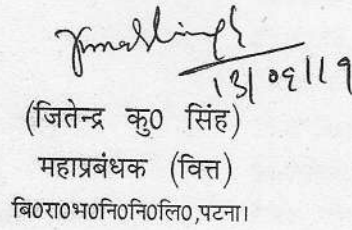 13/06/19
(जितेन्द्र कु0 सिंह)
महाप्रबंधक (वित्त)
बि0रा0भ0नि0नि0लि0,पटना।